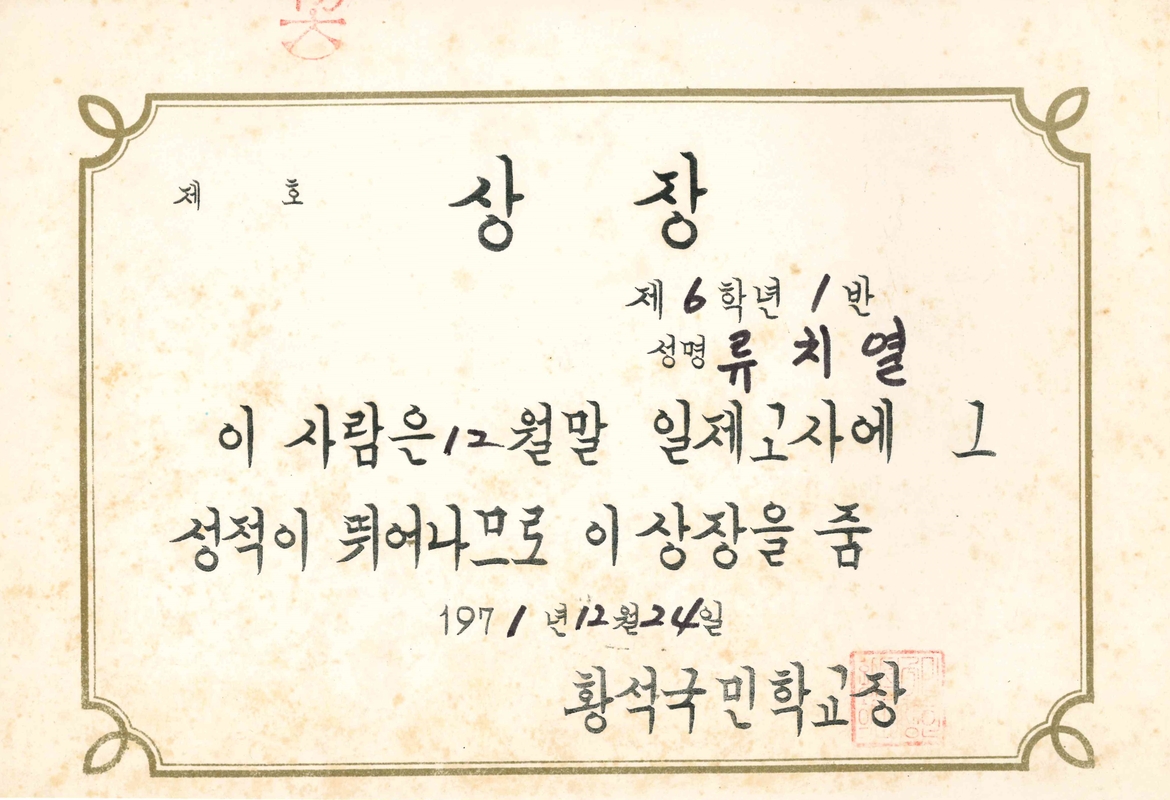 제 호 상 장
제 6 학년 1 반
성명 류 치 열
이 사람은 12 월말 일제고사에 그
성적이 뛰어나므로 이 상장을 줌
1971 년 12 월 24 일
황석국민학교장